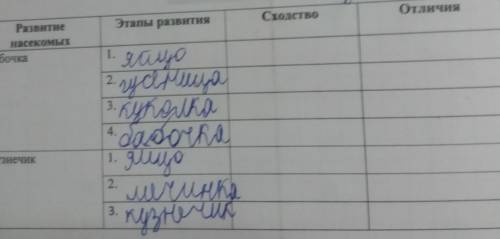 Развитие насекомых Этапы развития Сходство Отличия
бочка
1. яйцо
2. гусеница
3. куколка
4. бабочка
знечик
1. яйцо
2. личинка
3. кузнечик